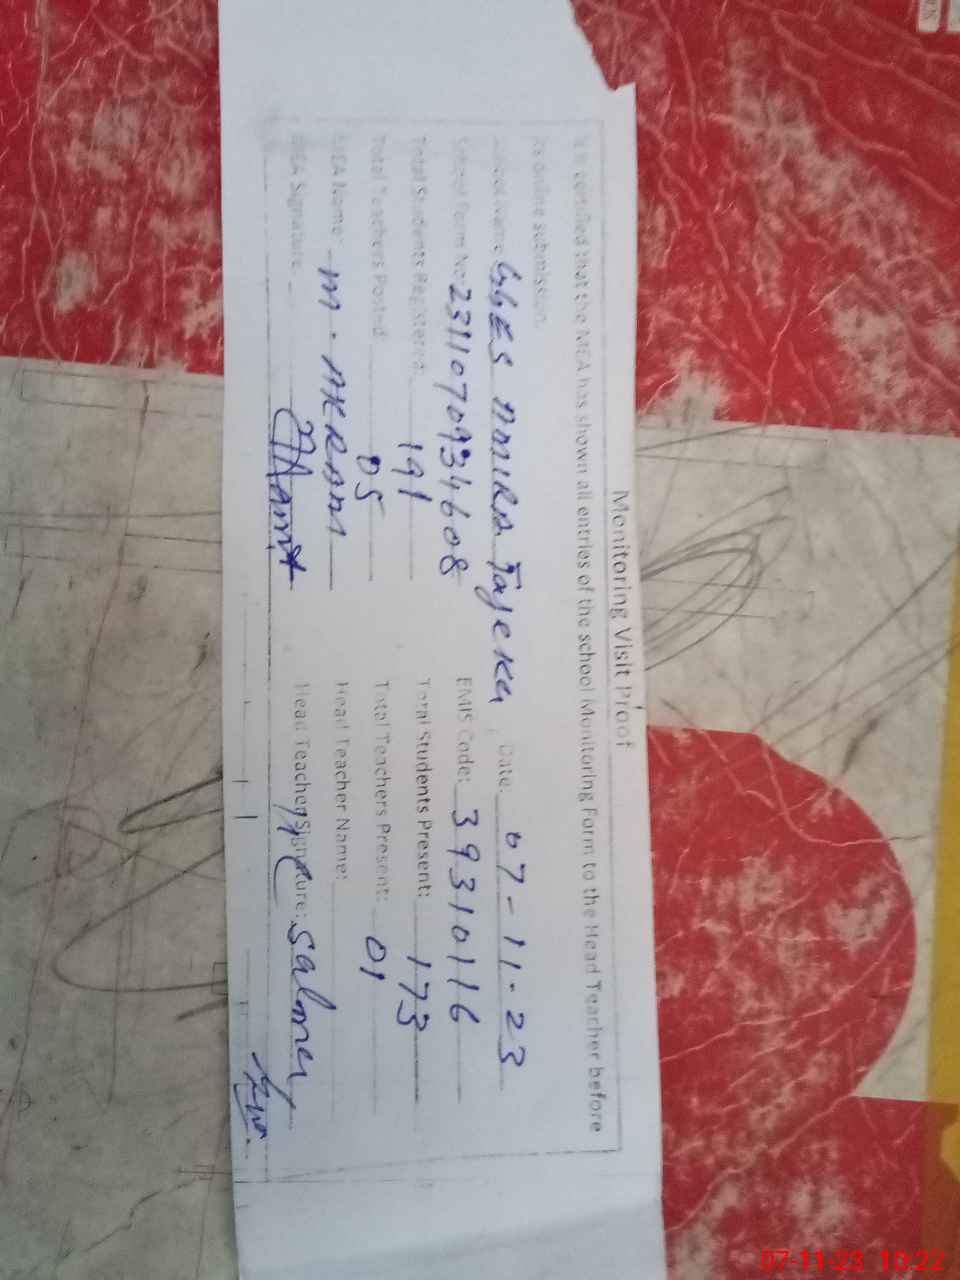 Monitoring Visit Proof
It is certified that the MEA has shown all entries of the school Monitoring Form to the Head Teacher before
its online submission.
School Name GGES Date: 07-11-23
School Form No: 2311070934608 EMIS Code: 39310116
Total Students Registered: 191 Total Students Present: 173
Total Teachers Posted 05 Total Teachers Present: 01
MEA Name: M. AKRAM Head Teacher Name:
MEA Signature Head Teacher Signature:
07-11-23 10:22